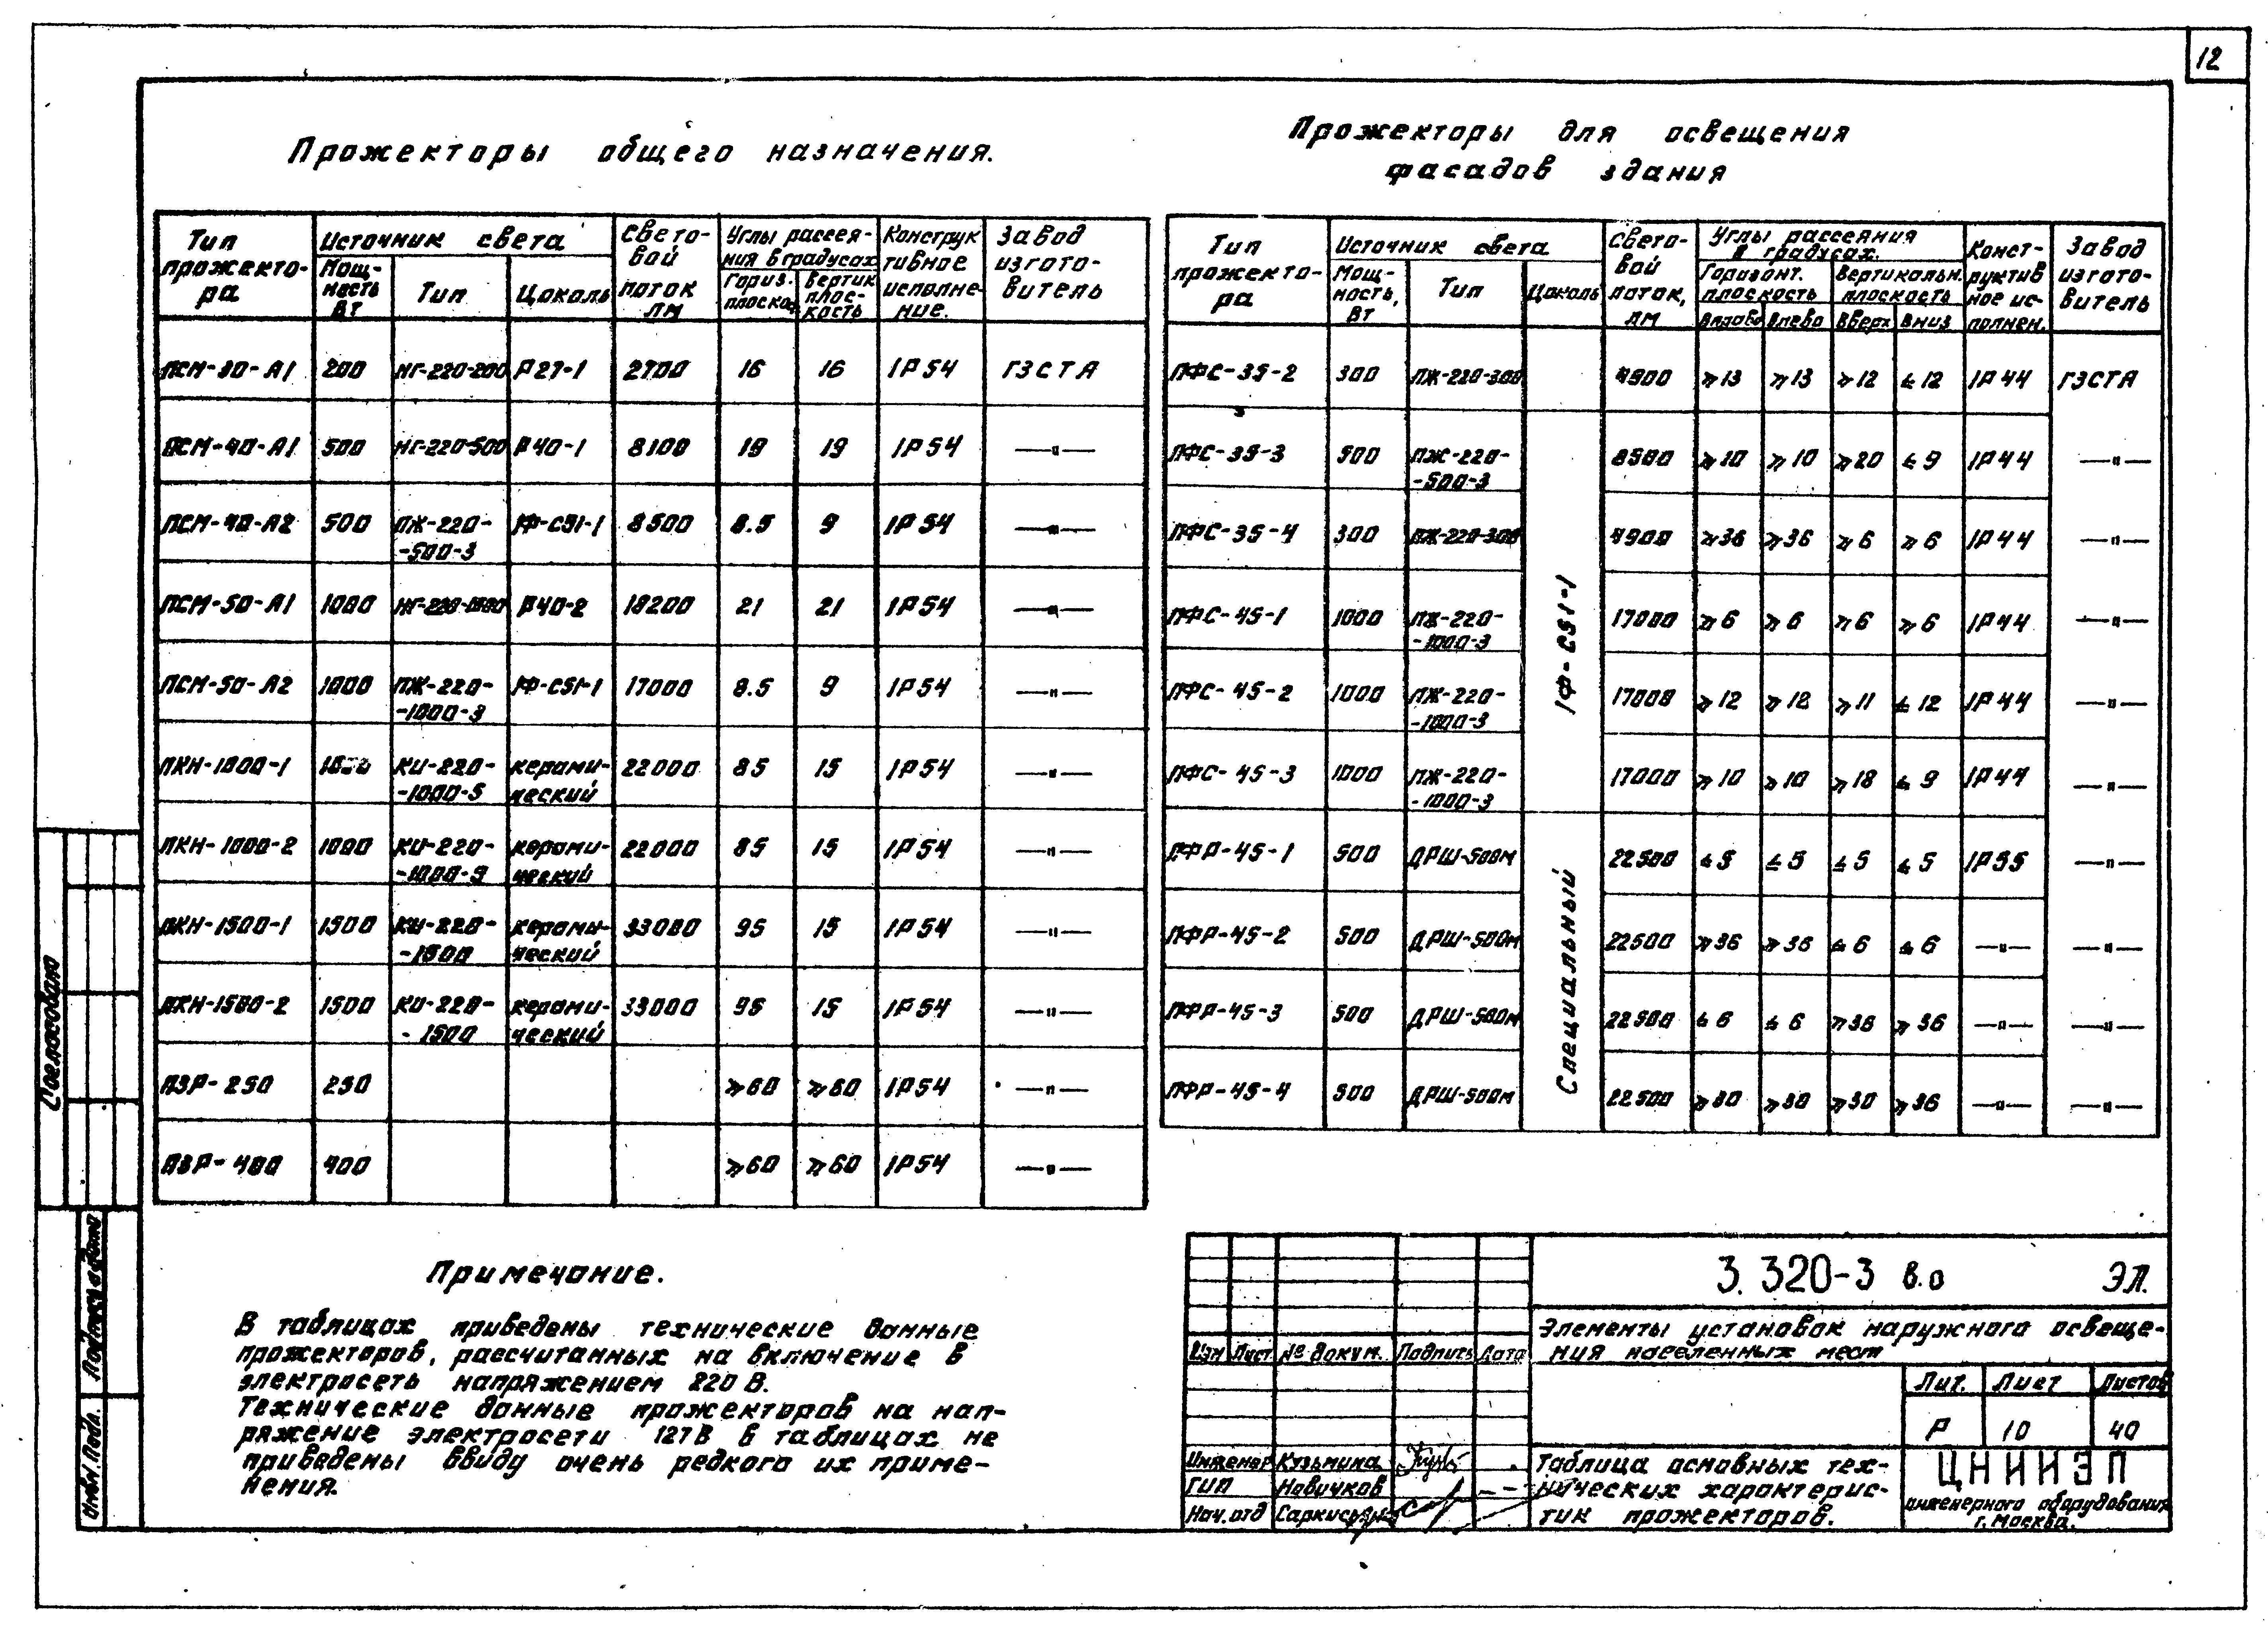 12
Прожекторы общего назначения.
Тип прожекто-ра | Источник света | Свето-вой поток лм | Углы рассея-ния в градусах | Конструк тивное исполне-ние. | Завод изгото-витель
Мощ-ность Вт | Тип | Цоколь | Гориз. плоскос. | Вертик плос-кость
ПСМ-30-А1 200 НГ-220-200 Р27-1 2700 16 16 IP54 ГЗСТА
ПСМ-40-А1 500 НГ-220-500 Р40-1 8100 19 19 IP54 —"—
ПСМ-40-А2 500 ПЖ-220--500-3 1Ф-С51-1 8500 8.5 9 IP54 —"—
ПСМ-50-А1 1000 НГ-220-1000 Р40-2 18200 21 21 IP54 —"—
ПСМ-50-А2 1000 ПЖ-220--1000-3 1Ф-С51-1 17000 8.5 9 IP54 —"—
ПКН-1000-1 1000 КИ-220--1000-5 керами-ческий 22000 85 15 IP54 —"—
ПКН-1000-2 1000 КИ-220--1000-9 керами-ческий 22000 85 15 IP54 —"—
ПКН-1500-1 1500 КИ-220--1500 керами-ческий 33000 95 15 IP54 —"—
ПКН-1500-2 1500 КИ-220--1500 керами-ческий 33000 95 15 IP54 —"—
ПЗР-250 250 ⩾60 ⩾60 IP54 —"—
ПЗР-400 400 ⩾60 ⩾60 IP54 —"—
Прожекторы для освещения
фасадов здания
Тип прожекто-ра | Источник света | Свето-вой поток, лм | Углы рассеяния в градусах. | Конст-руктив ное ис-полнен. | Завод изгото-витель
Мощ-ность, Вт | Тип | Цоколь | Горизонт. плоскость | Вертикальн. плоскость
Вправо Влево Вверх Вниз
ПФС-35-2 300 ПЖ-220-300 4900 ⩾13 ⩾13 ⩾12 ⩽12 IP44 ГЗСТА
ПФС-35-3 500 ПЖ-220--500-3 8500 ⩾10 ⩾10 ⩾20 ⩽9 IP44 —"—
ПФС-35-4 300 ПЖ-220-300 4900 ⩾36 ⩾36 ⩾6 ⩾6 IP44 —"—
ПФС-45-1 1000 ПЖ-220--1000-3 17000 ⩾6 ⩾6 ⩾6 ⩾6 IP44 —"—
ПФС-45-2 1000 ПЖ-220--1000-3 17000 ⩾12 ⩾12 ⩾11 ⩽12 IP44 —"—
ПФС-45-3 1000 ПЖ-220--1000-3 17000 ⩾10 ⩾10 ⩾18 ⩽9 IP44 —"—
1Ф-С51-1
ПФР-45-1 500 ДРШ-500М 22500 ⩽5 ⩽5 ⩽5 ⩽5 IP55 —"—
ПФР-45-2 500 ДРШ-500М 22500 ⩾36 ⩾36 ⩽6 ⩽6 —"— —"—
ПФР-45-3 500 ДРШ-500М 22500 ⩽6 ⩽6 ⩾36 ⩾36 —"— —"—
ПФР-45-4 500 ДРШ-500М 22500 ⩾30 ⩾30 ⩾30 ⩾36 —"— —"—
Специальный
Примечание.
В таблицах приведены технические данные
прожекторов, рассчитанных на включение в
электросеть напряжением 220 В.
Технические данные прожекторов на нап-
ряжение электросети 127В в таблицах не
приведены ввиду очень редкого их приме-
нения.
3. 320-3 в.0 ЭЛ.
Элементы установок наружного освеще-
ния населенных мест
Изм Лист № докум. Подпись Дата
Лит. Лист Листов
Р 10 40
Инженер Кузьмина
ГИП Новичков
Нач.отд Саркисянц
Таблица основных тех-
нических характерис-
тик прожекторов.
ЦНИИЭП
инженерного оборудования
г. Москва.
Согласовано
Подпись и дата
Инв.№ Подл.